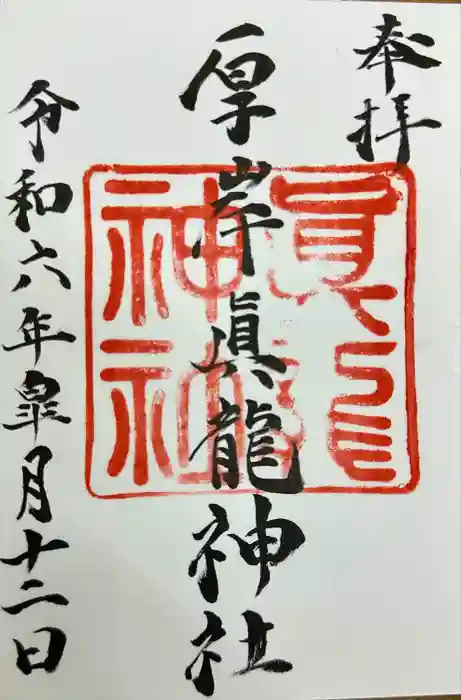 奉拝
厚岸眞龍神社
令和六年皐月十二日
眞龍神社